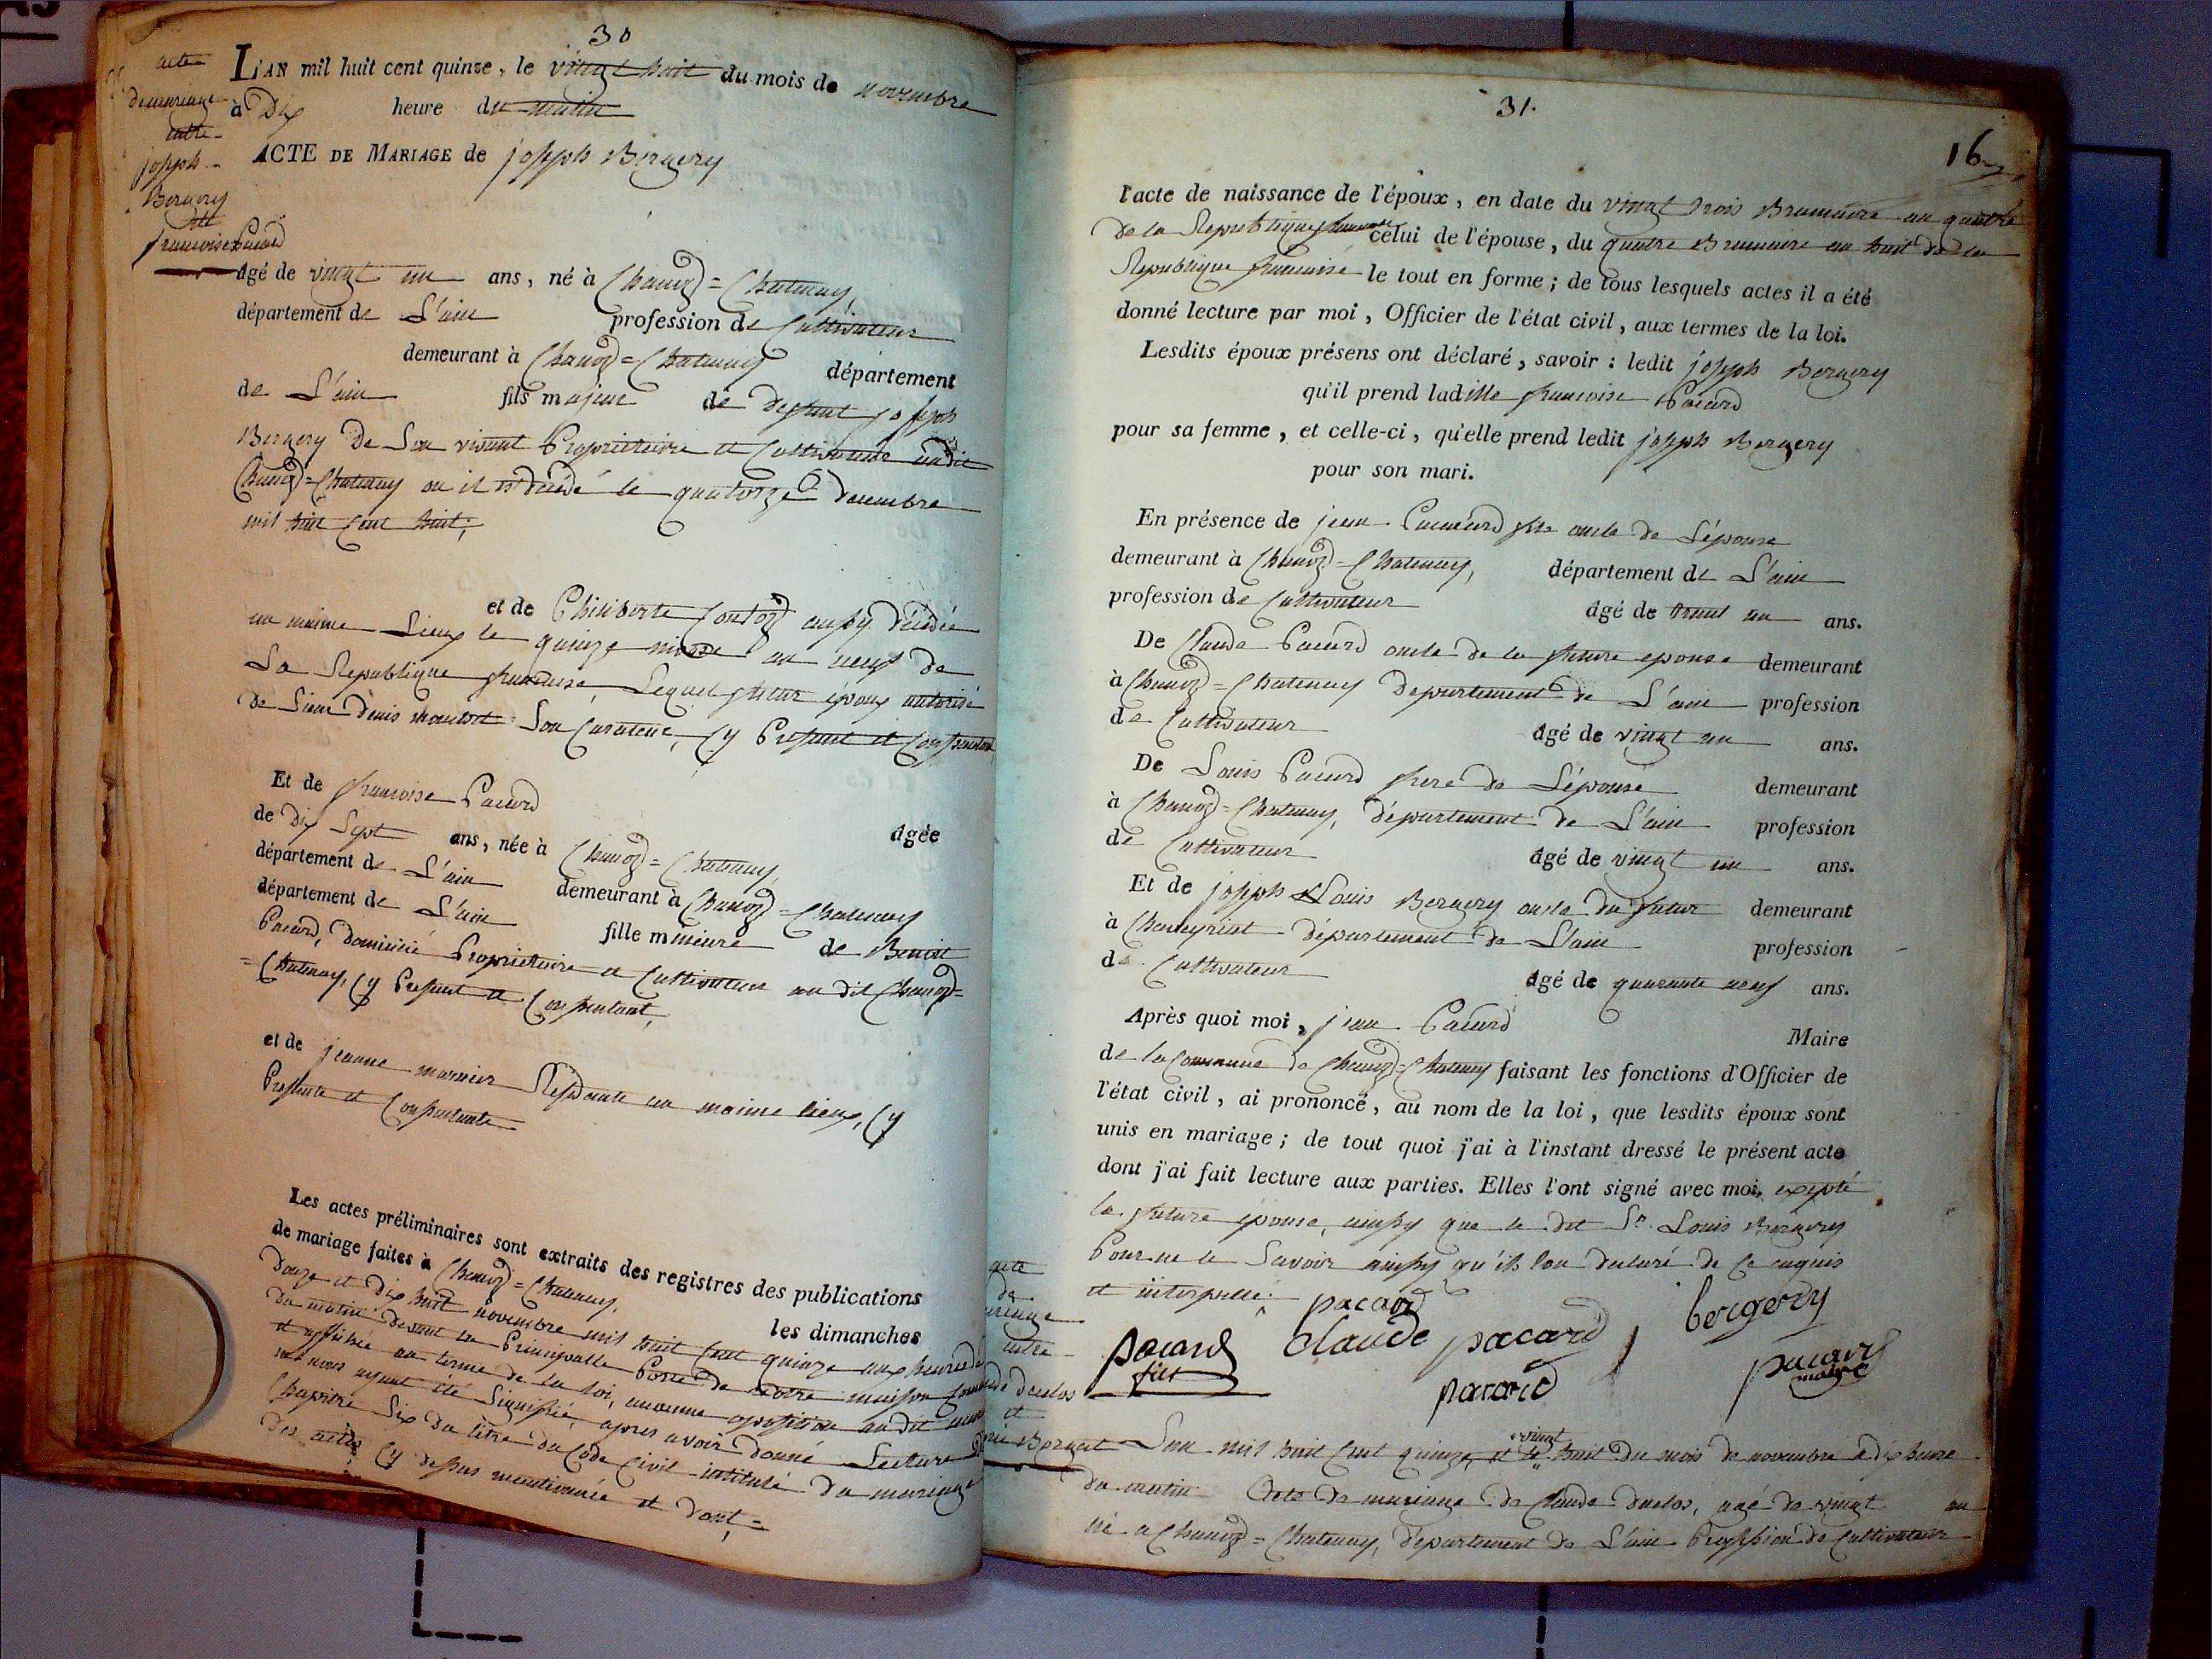 30
acte
de mariage
entre
joseph
Bergery
et
francoise Pacard
L'AN mil huit cent quinze, le vingt huit du mois de novembre
à Dix heure du matin
ACTE DE MARIAGE de joseph Bergery
âgé de vingt un ans, né à Chanoz=Chatenay,
département de L'ain profession de Cultivateur
demeurant à Chanoz=Chatenay département
de L'ain fils majeur de deffunt joseph
Bergery De Son vivant Proprietaire et Cultivateur audit
Chanoz=Chatenay ou il est décédé le quatorze decembre
mil huit Cent huit;
et de Philiberte Contoz aussy décédée
au maime Lieux le quinze nivose an neuf de
La Republique francaise, Lequel futur époux autorisé
de Sieur Denis Son Curateur, Cy Présant et Consentant
Et de francoise Pacard
âgée
de Dix Sept ans, née à Chanoz=Chatenay,
département de L'ain demeurant à Chanoz=Chatenay
département de L'ain fille mineure de Benoit
Pacard, domicilié Proprietaire et Cultivateur au dit Chanoz=
=Chatenay, Cy Présant et Consentant,
et de jeanne marmier Residante au maime lieux, Cy
Présente et Consentante
Les actes préliminaires sont extraits des registres des publications
de mariage faites à Chanoz=Chatenay, les dimanches
Douze et Dix huit novembre mil huit Cent quinze aux heures de
du matin devant la Principalle Porte de notre maison Commune
et affichée au terme de la loi, aucunne oposition au dit mariage
ne nous ayant été Signifiée, apres avoir donné Lecture
Chapitre Six du titre du Code Civil intitulé Du mariage
Des actes Cy dessus mentionnée et Dont=
31.
16
l'acte de naissance de l'époux, en date du vingt trois Brumaire an quatre
de la Republique francaise celui de l'épouse, du quatre Brumaire an huit de la
Republique francaise le tout en forme; de tous lesquels actes il a été
donné lecture par moi, Officier de l'état civil, aux termes de la loi.
Lesdits époux présens ont déclaré, savoir: ledit joseph Bergery
qu'il prend ladille francoise Pacard
pour sa femme, et celle-ci, qu'elle prend ledit joseph Bergery
pour son mari.
En présence de jean Pacard fils oncle de L'épouse
demeurant à Chanoz=Chatenay, département de L'ain
profession de Cultivateur âgé de trent un ans.
De Claude Pacard oncle de la future epouse demeurant
à Chanoz=Chatenay Departement de L'ain profession
de Cultivateur âgé de vingt un ans.
De Louis Pacard frere de L'épouse demeurant
à Chanoz=Chatenay, département de L'ain profession
de Cultivateur âgé de vingt un ans.
Et de joseph Louis Bergery oncle du futur demeurant
à Chaveyriat département de L'ain profession
de Cultivateur âgé de quarante neuf ans.
Après quoi moi, jean Pacard Maire
de la Commune de Chanoz=Chatenay faisant les fonctions d'Officier de
l'état civil, ai prononcé, au nom de la loi, que lesdits époux sont
unis en mariage; de tout quoi j'ai à l'instant dressé le présent acte
dont j'ai fait lecture aux parties. Elles l'ont signé avec moi, expté
la future epouse, ainssy que le dit Sr. Louis Bergery
Pour ne le Savoir ainssy qu'ils l'on declaré de Ce enquis
et interpellé.
pacard
bergery
pacard
fils
Claude pacard
pacard
maire
pacard
acte
de
mariage
entre
Claude Duclos
et
Lan mil huit Cent quinze, et le vingt huit du mois de novembre à dix heure
du matin Acte de mariage de Claude duclos, agé de vingt an
né a Chanoz=Chatenay, département de L'ain Profession de Cultivateur